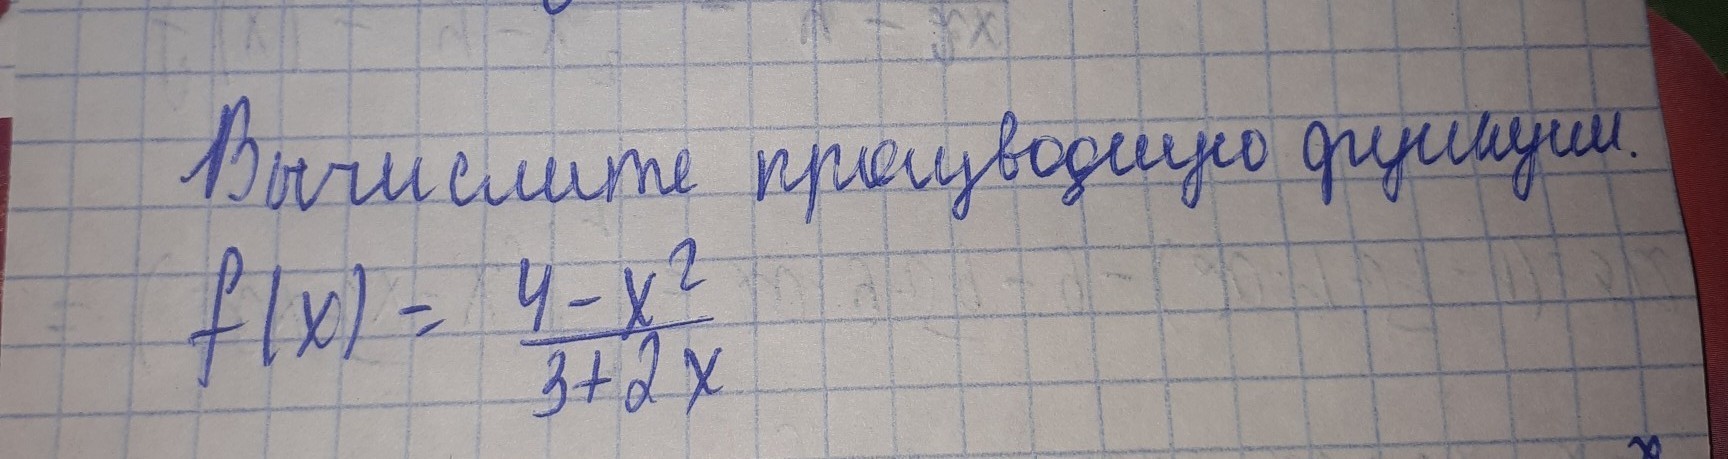 Вычислите производную функции.
f(x) = \frac{4-x^2}{3+2x}